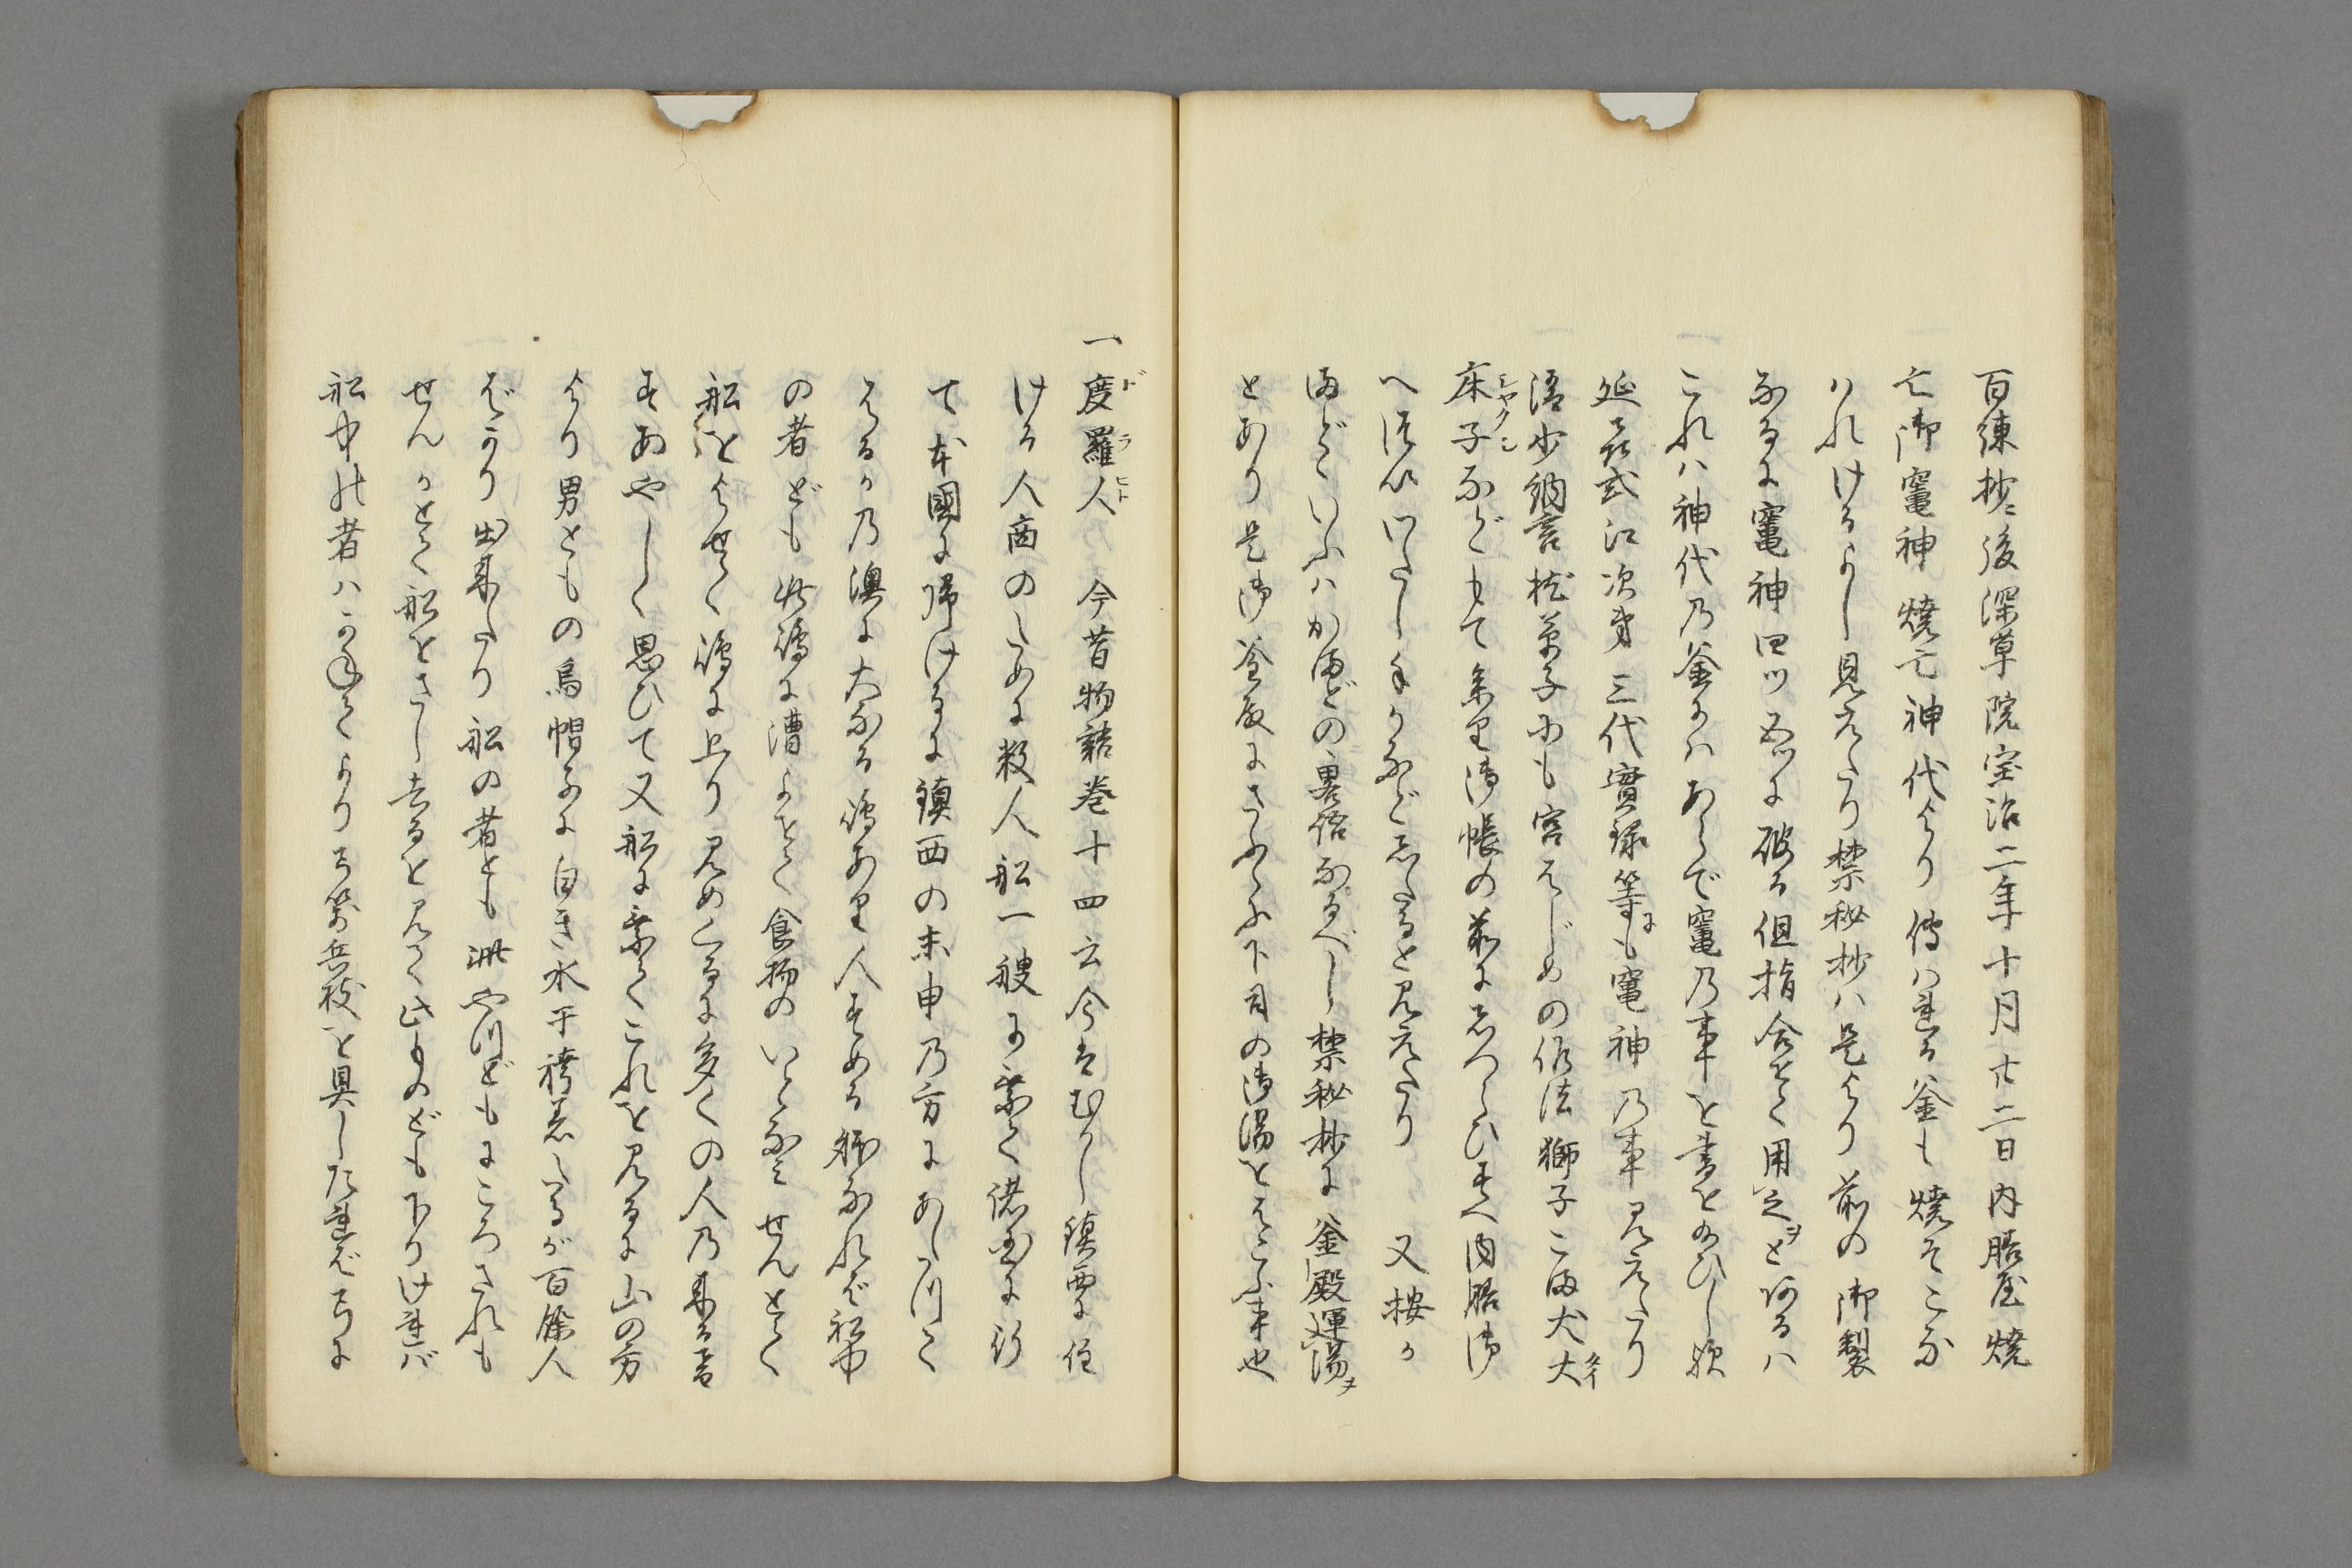 百練抄ニ後深草院宝治二年十月廿二日内膳屋焼
亡御竃神焼亡神代より傳はれる釜も焼そこな
はれけるよし見えたり禁秘抄ハ是より前の御製
なるに竃神四ツ五ツに破る但指合せて用之ヲとあるハ
これハ神代乃釜にハあらで竃乃事を書せ給ひし歟
延喜式江次第三代實録等にも竃神乃事見えたり
清少納言枕草子にも宮はじめの作法獅子こま犬大
床子などもて参里御帳の前にしつらひすへ内膳御
へつひわたし奉りなどしたると見えたり　又按る
まどといふハかまどの畧語なるべし禁秘抄に釜殿運湯ヲ
とあり是御釜殿にさふらふ下司の御湯をはこぶ事也
一度羅人　今昔物語巻十四云今はむかし鎮西に住
ける人商のために数人船一艘に乗て他国に行
て本國に帰けるに鎮西の未申乃方にあたりて
はるか乃澳に大なる嶋あり人すめる躰なれば船中
の者ども此嶋に漕よせて食物のいとなミせんとて
船をよせて嶋に上り見めぐるに多くの人乃来る音
すあやしく思ひて又船に乗てこれを見るに山の方
より男ともの烏帽子に白き水干袴着たるが百餘人
ばかり出来たり船の者とも此やつどもにころされも
せんかとて船をさし去るを見て此ものども下りければ
船中の者ハかねてより弓箭兵杖を具したればラに